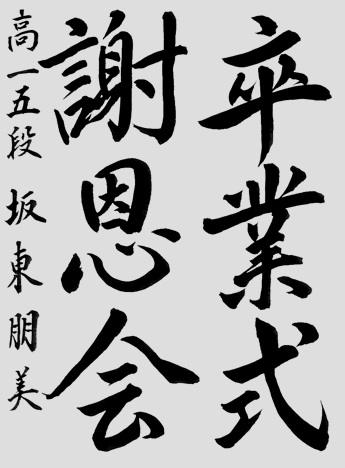 卒業式
謝恩会
高一五段 坂東朋美